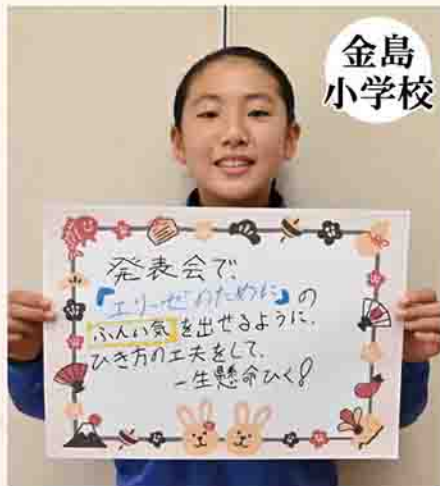 金島
小学校
発表会で、
『エリーゼのために』の
ふんい気を出せるように、
ひき方の工夫をして、
一生懸命ひく！